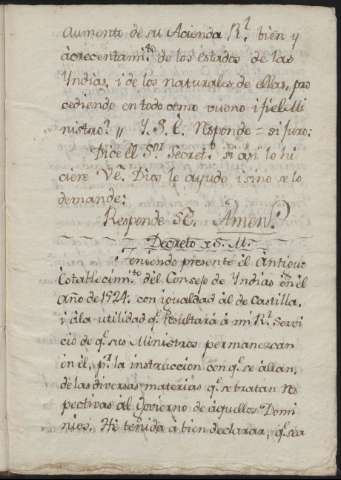 aumento de su Acienda R.l bien y
acrecentam.to de los estados de las
Yndias, i de los naturales de ellas, pro
cediendo en todo como vueno i fiel Mi
nistro? „ Y. S. E. Responde = si juro:
Dice el S.or Secret.o si asi lo hi
ciere V.E. Dios le ayude i sino se lo
demande:
Responde S.E. Amen.
Decreto de S. M.
Teniendo presente el Antiguo
Establecim.to del Consejo de Yndias en el
año de 1524. con igualdad al de Castilla,
i â la utilidad q.e resultará â mi R.l Servi
cio de q.e sus Ministros permanezcan
en él, p.r la instruccion con q.e se allan,
de las diversas materias q.e se tratan Res
pectivas âl Govierno de aquellos Domi
nios. Hé tenido â bien declarar, q.e sea